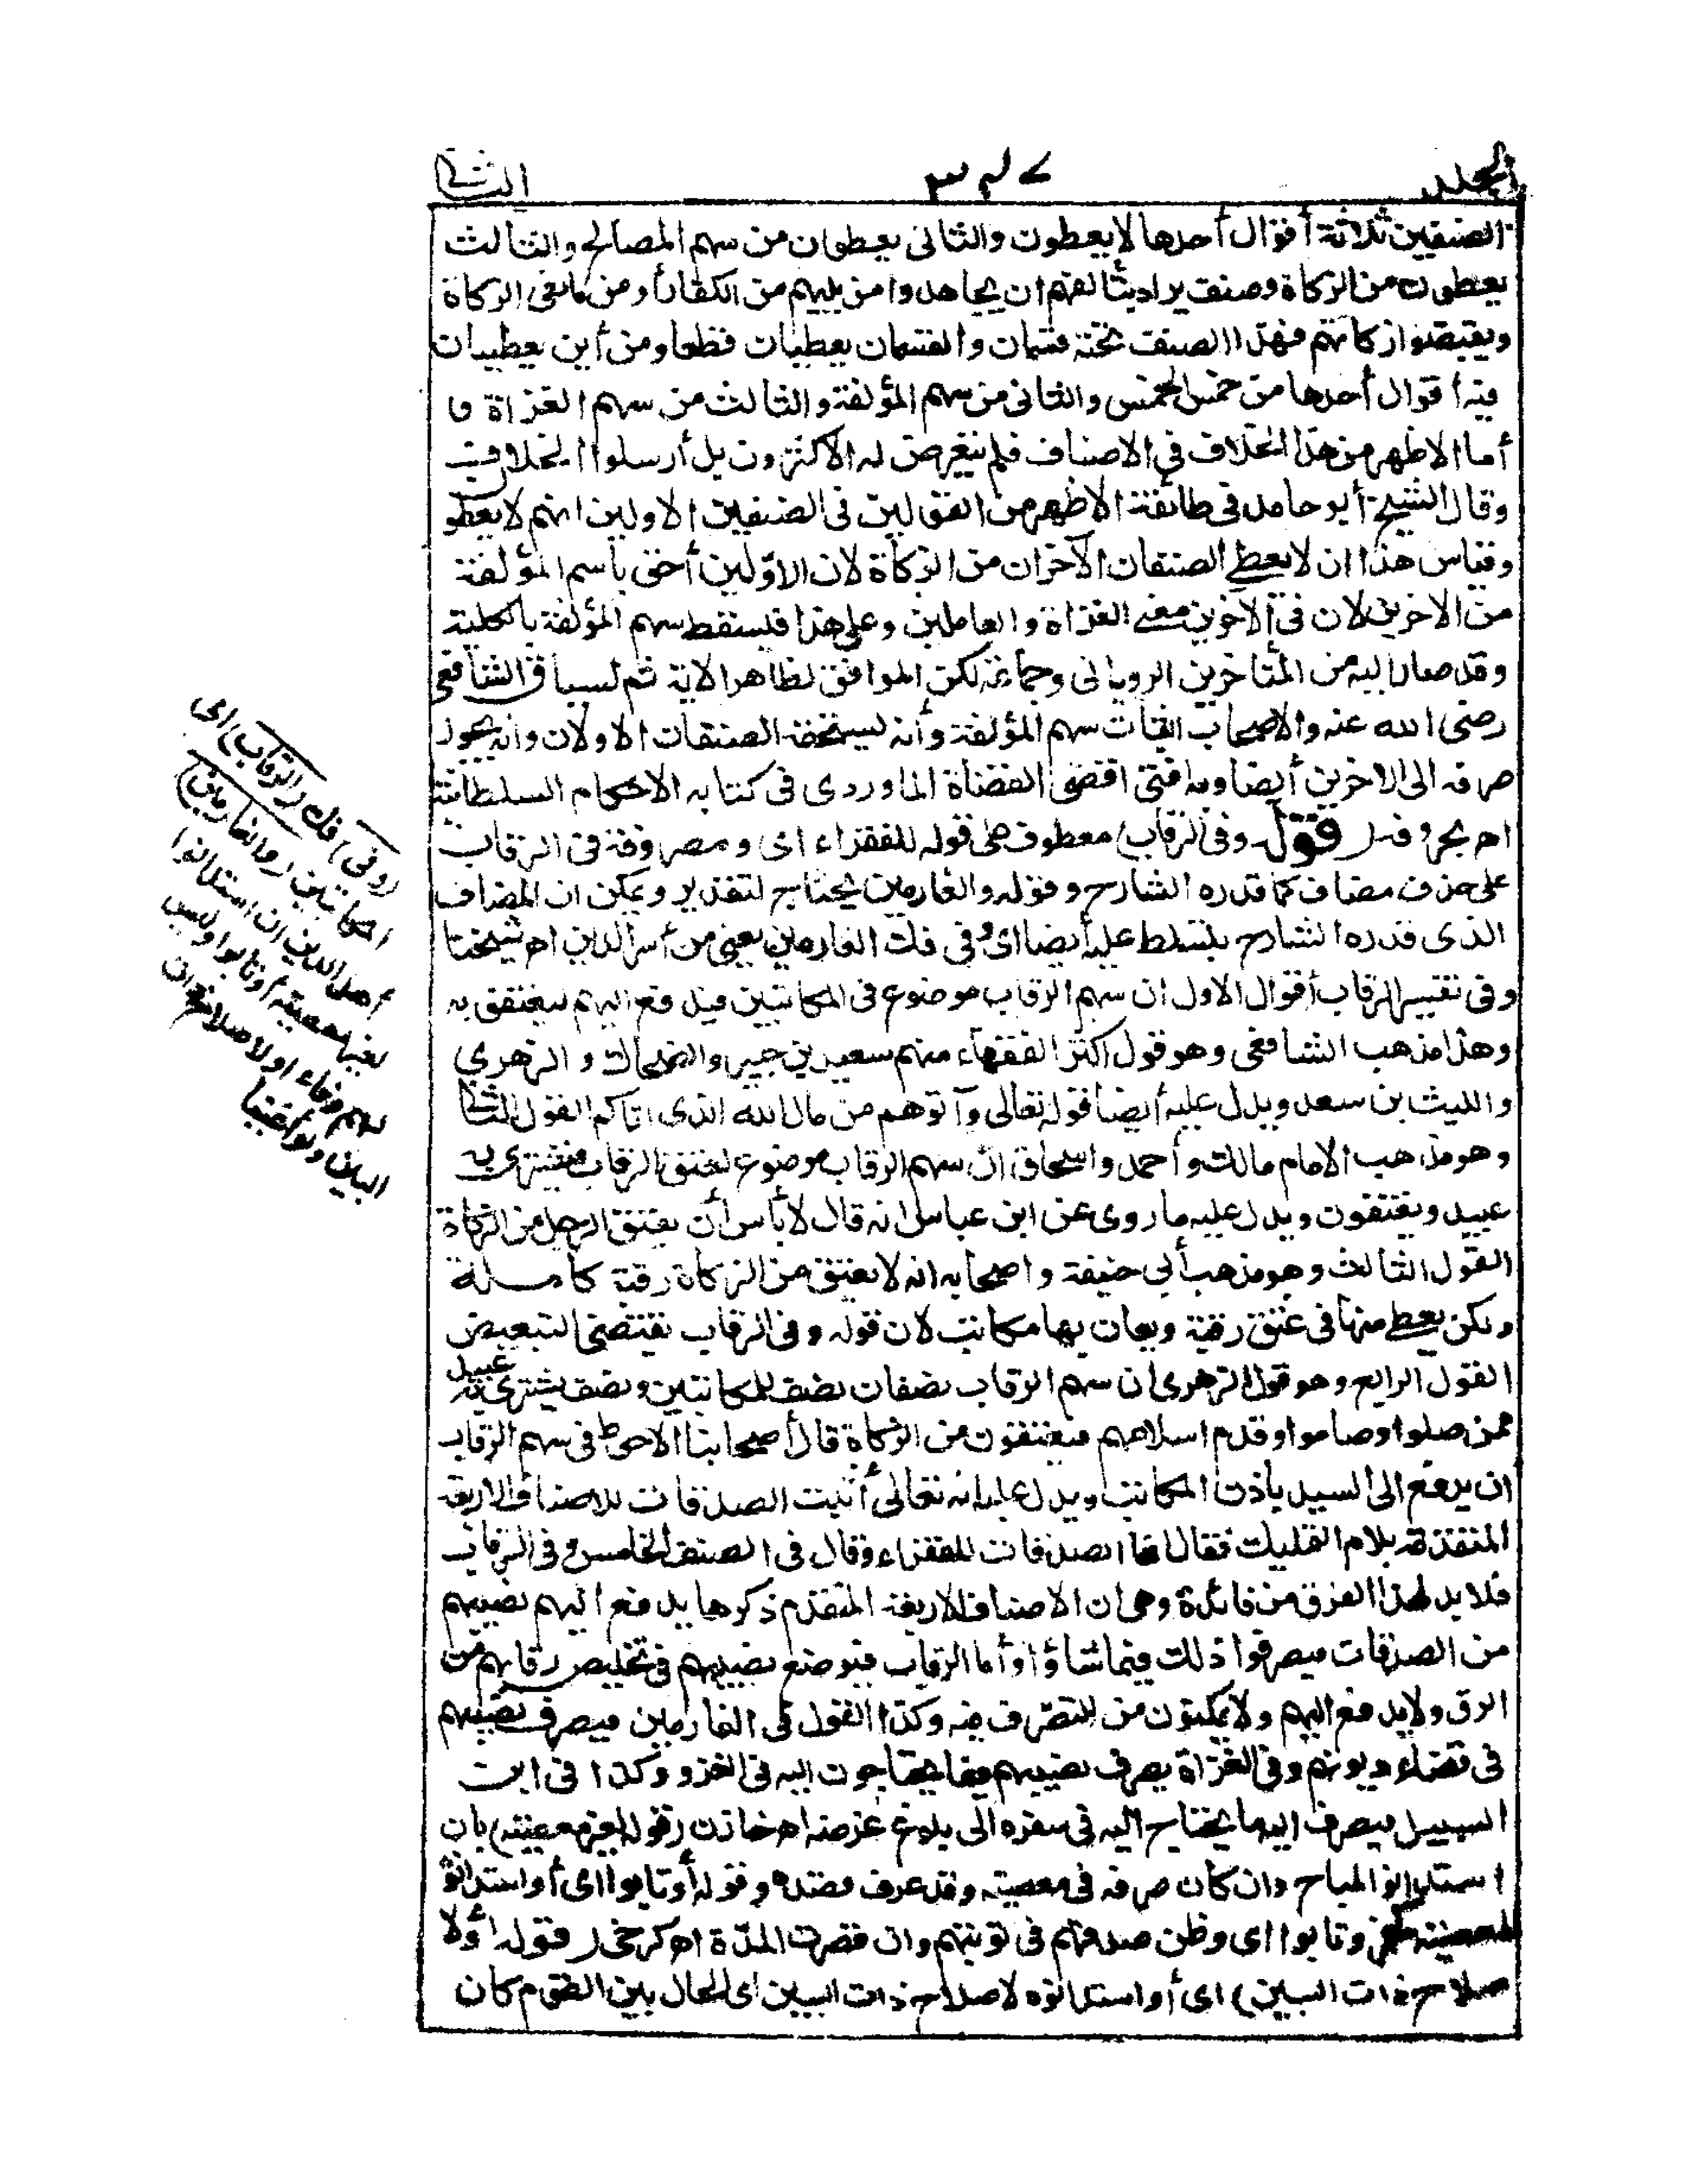 المجلد
الثانى
الصنفين ثلاثة أقوال أحدها لا يعطون والثانى يعطون من سهم المصالح والثالث
يعطون من الزكاة وصنف يراد بتألفهم ان يجاهدوا من يليهم من الكفار أو من مانعى الزكاة
ويقبضوا زكاتهم فهذا الصنف تحته قسمان والقسمان يعطيان قطعا ومن أين يعطيان
فيه أقوال أحدها من خمس الخمس والثانى من سهم المؤلفة والثالث من سهم الغزاة
أما الاظهر من هذا الخلاف فى الاصناف فلم يتعرض له الاكثرون بل أرسلوا الخلاف
وقال الشيخ أبو حامد فى طائفة الاظهر من القولين فى الصنفين الاولين انهم لا يعطو
وقياس هذا ان لا يعطى الصنفان الآخران من الزكاة لان الاوّلين أحق باسم المؤلفة
من الاخرين لان فى الآخرين معنى الغزاة والعاملين وعلى هذا فيسقط سهم المؤلفة بالكلية
وقد صار اليه من المتأخرين الرويانى وجماعة لكن الموافق لظاهر الاية ثم لسياق الشافعى
رضى الله عنه والاصحاب اثبات سهم المؤلفة وأنه يستحقه الصنفان الاولان وانه يجوز
صرفه الى الاخرين أيضا وبه افتى اقضى القضاة الماوردى فى كتابه الاحكام السلطانية
اه بحروفه (قوله وفى الرقاب) معطوف على قوله للفقراء اى ومصروفة فى الرقاب
على حذف مضاف كما قدره الشارح وقوله والغارمين يحتاج لتقدير ويمكن ان المضاف
الذى قدره الشارح يتسلط عليه أيضا اى وفى فك الغارمين يعنى من أسر الدين اه شيخنا
وفى تفسير الرقاب أقوال الاول ان سهم الرقاب موضوع فى المكاتبين فيدفع اليهم ليعتقق به
وهذا مذهب الشافعى وهو قول اكثر الفقهاء منهم سعيد بن جبير والضحاك والزهرى
والليث بن سعد ويدل عليه أيضا قوله تعالى وآتوهم من مال الله الذى اتاكم القول الثانى
وهو مذهب الامام مالك وأحمد واسحاق ان سهم الرقاب موضوع لعتق الرقاب فيشترى به
عبيد ويعتقون ويدل عليه ما روى عن ابن عباس انه قال لا بأس أن يعتق الرجل من الزكاة
القول الثالث وهو مذهب أبى حنيفة واصحابه انه لا يعتق من الزكاة رقبة كاملة
ولكن يعطى منها فى عتق رقبة ويعان بها مكاتب لان قوله وفى الرقاب يقتضى التبعيض
القول الرابع وهو قول الزهرى ان سهم الرقاب نصفان نصف للمكاتبين ونصف يشترى به عبيد
ممن صلوا وصاموا وقدم اسلامهم فيعتقون من الزكاة قال أصحابنا الاحوط فى سهم الرقاب
ان يدفع الى السيد باذن المكاتب ويدل عليه انه تعالى أثبت الصدقات للاصناف الاربعة
المتقدمة بلام التمليك فقال انما الصدقات للفقراء وقال فى الصنف الخامس وفى الرقاب
فلا بد لهذا الفرق من فائدة وهى ان الاصناف الاربعة المتقدم ذكرها يدفع اليهم نصيبهم
من الصدقات فيصرفوا ذلك فيما شاؤا وأما الرقاب فيوضع نصيبهم فى تخليص رقابهم من
الرق ولا يدفع اليهم ولا يمكنون من التصرف فيه وكذا القول فى الغارمين فيصرف نصيبهم
فى قضاء ديونهم وفى الغزاة يصرف نصيبهم فيما يحتاجون اليه فى الغزو وكذا فى ابن
السبيل فيصرف اليه ما يحتاج اليه فى سفره الى بلوغ غرضه اه خازن (قوله لغير معصية) بان
استدانوا لمباح وان كان صرفه فى معصية وقد عرف قصده وقوله أو تابوا اى أو استدانوا
لمعصية وتابوا اى وظن صدقهم فى توبتهم وان قصرت المدّة اه كرخى (قوله أو لا
صلاح ذات البين) اى أو استدانوه لاصلاح ذات البين اى الحال بين القوم كان
(وفى) فك (الرقاب) اى
المكاتبين (والغارمين)
أهل الدين ان استدانوا
لغير معصية أو تابوا وليس
لهم وفاء او لاصلاح ذات
البين ولو أغنيا